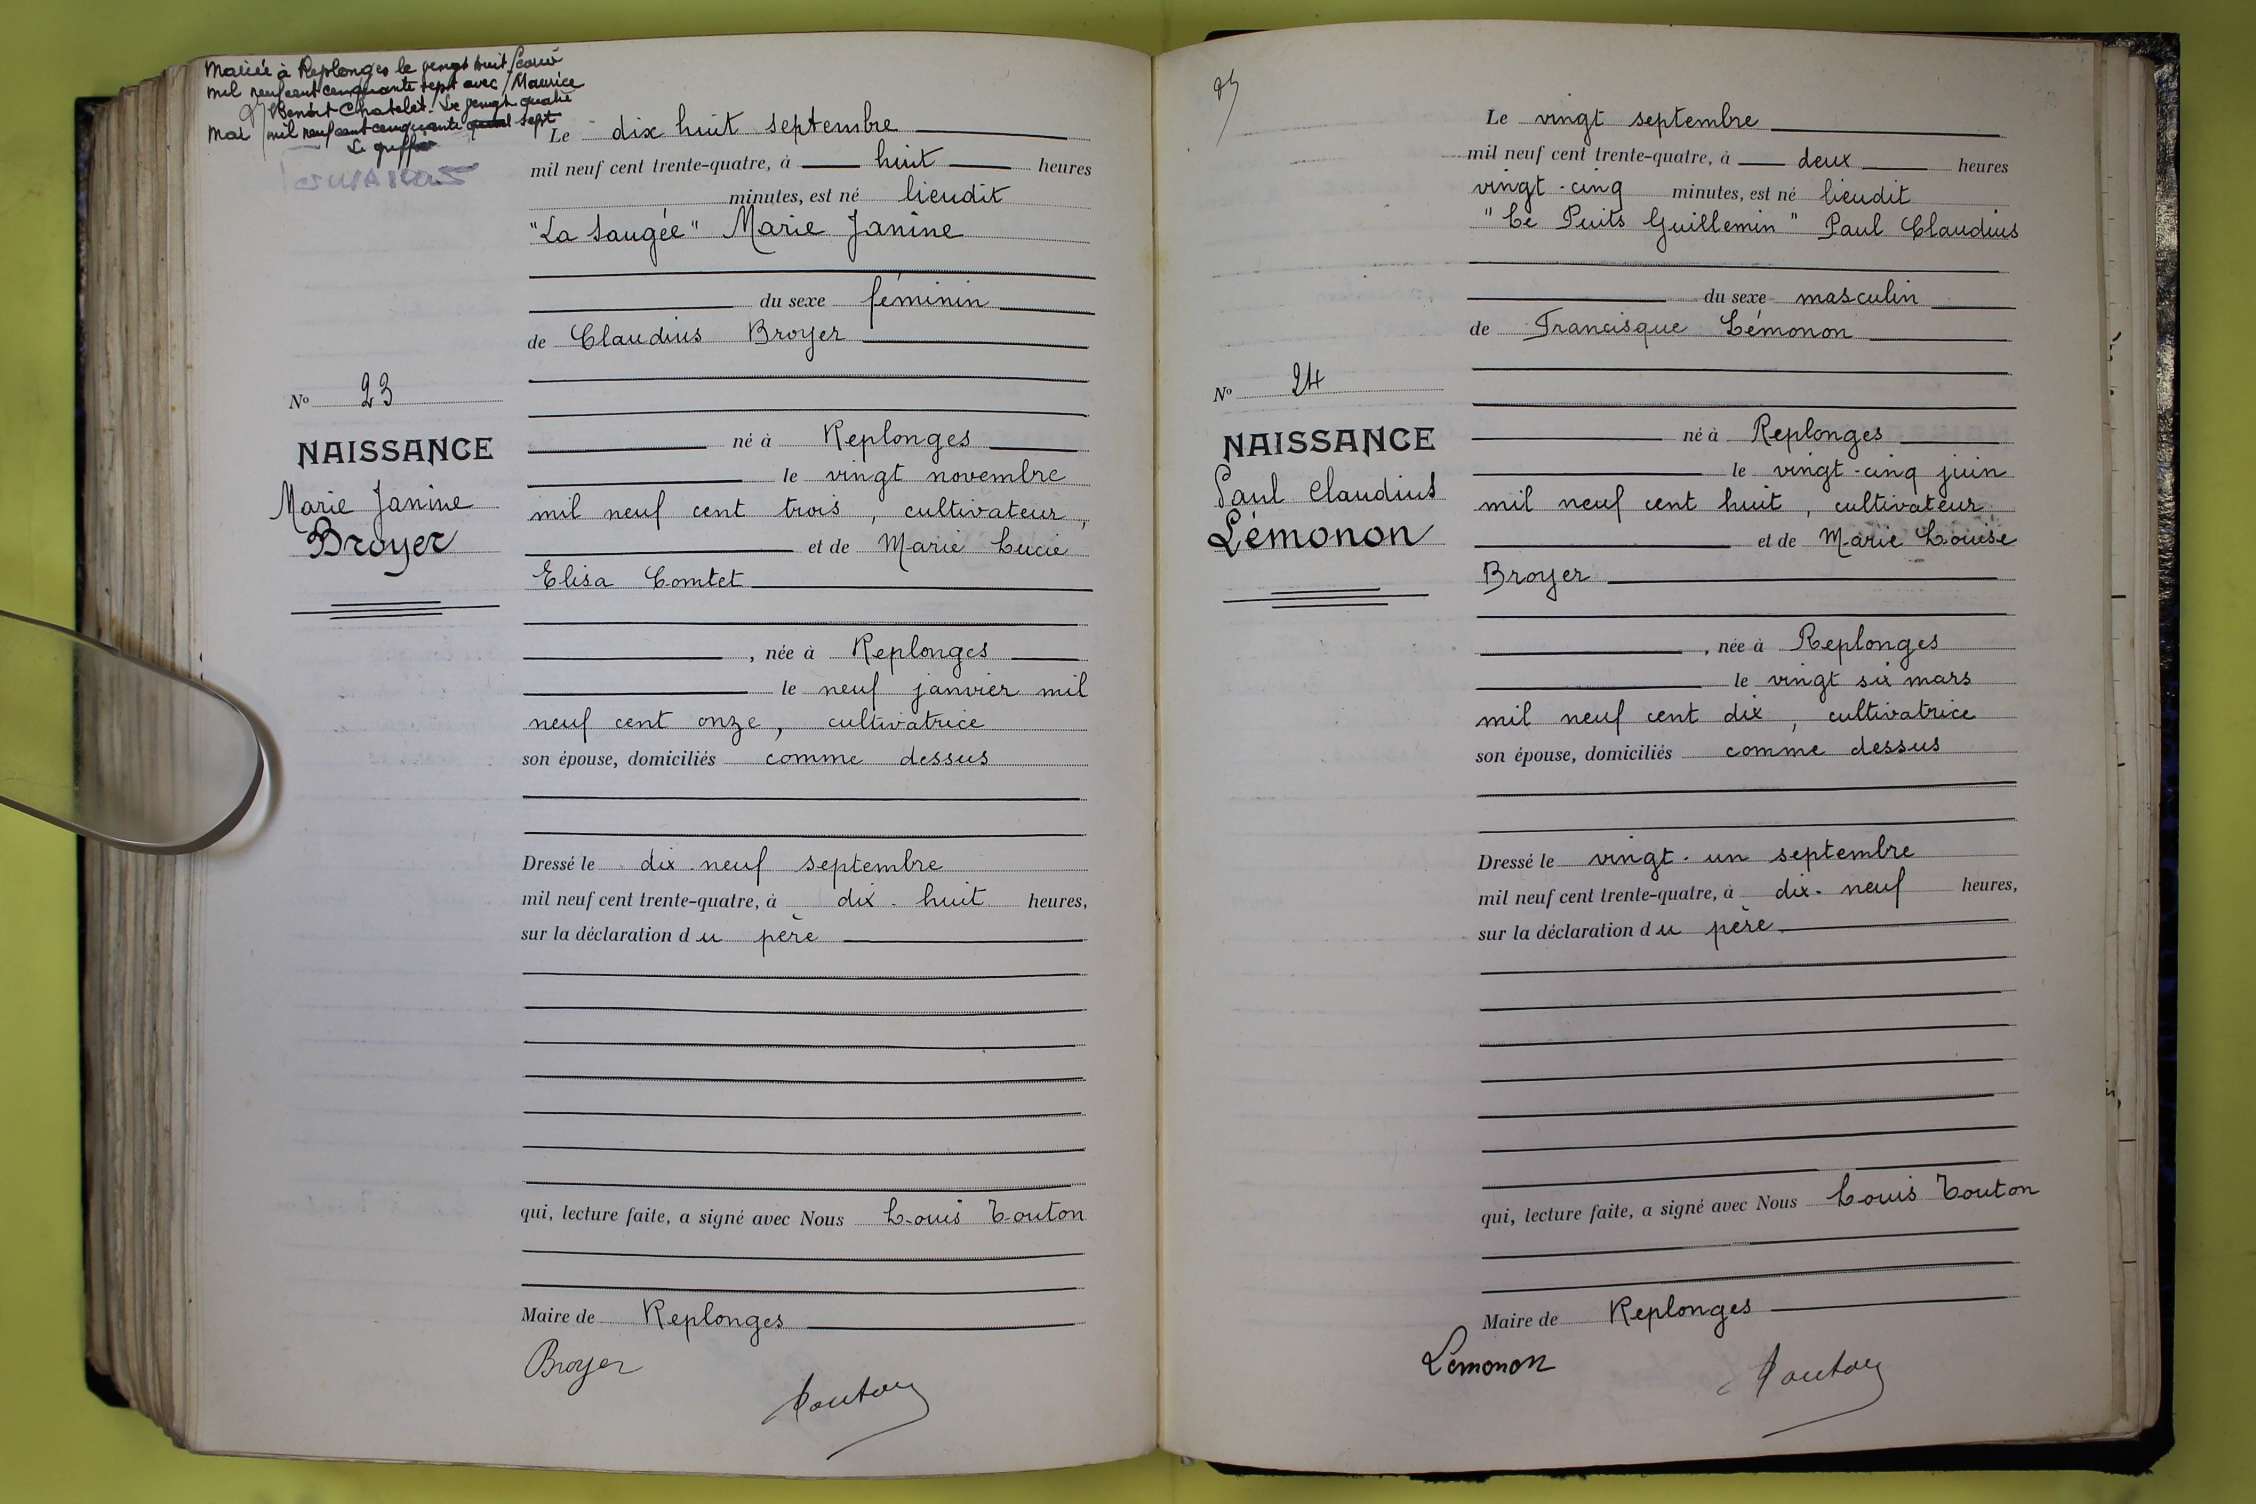 Mariée à Replonges le vingt huit
mil neuf cent cinquante sept avec Maurice
Benoit Chatelet. Le vingt quatre
mai mil neuf cent cinquante sept
Le greffier
Le dix huit septembre
mil neuf cent trente-quatre, à huit heures
minutes, est né lieudit
"La Saugée" Marie Janine
du sexe féminin
de Claudius Broyer
No 23
né à Replonges
NAISSANCE
le vingt novembre
Marie Janine
mil neuf cent trois, cultivateur,
Broyer
et de Marie Lucie
Elisa Comtet
, née à Replonges
le neuf janvier mil
neuf cent onze, cultivatrice
son épouse, domiciliés comme dessus
Dressé le dix-neuf septembre
mil neuf cent trente-quatre, à dix-huit heures,
sur la déclaration du père
qui, lecture faite, a signé avec Nous Louis Touton
Maire de Replonges
Broyer
Touton
Le vingt septembre
mil neuf cent trente-quatre, à deux heures
vingt-cinq minutes, est né lieudit
"Le Puits Guillemin" Paul Claudius
du sexe masculin
de Francisque Lémonon
No 24
né à Replonges
NAISSANCE
le vingt-cinq juin
Paul Claudius
mil neuf cent huit, cultivateur
Lémonon
et de Marie Louise
Broyer
, née à Replonges
le vingt six mars
mil neuf cent dix, cultivatrice
son épouse, domiciliés comme dessus
Dressé le vingt-un septembre
mil neuf cent trente-quatre, à dix-neuf heures,
sur la déclaration du père
qui, lecture faite, a signé avec Nous Louis Touton
Maire de Replonges
Lémonon
Touton